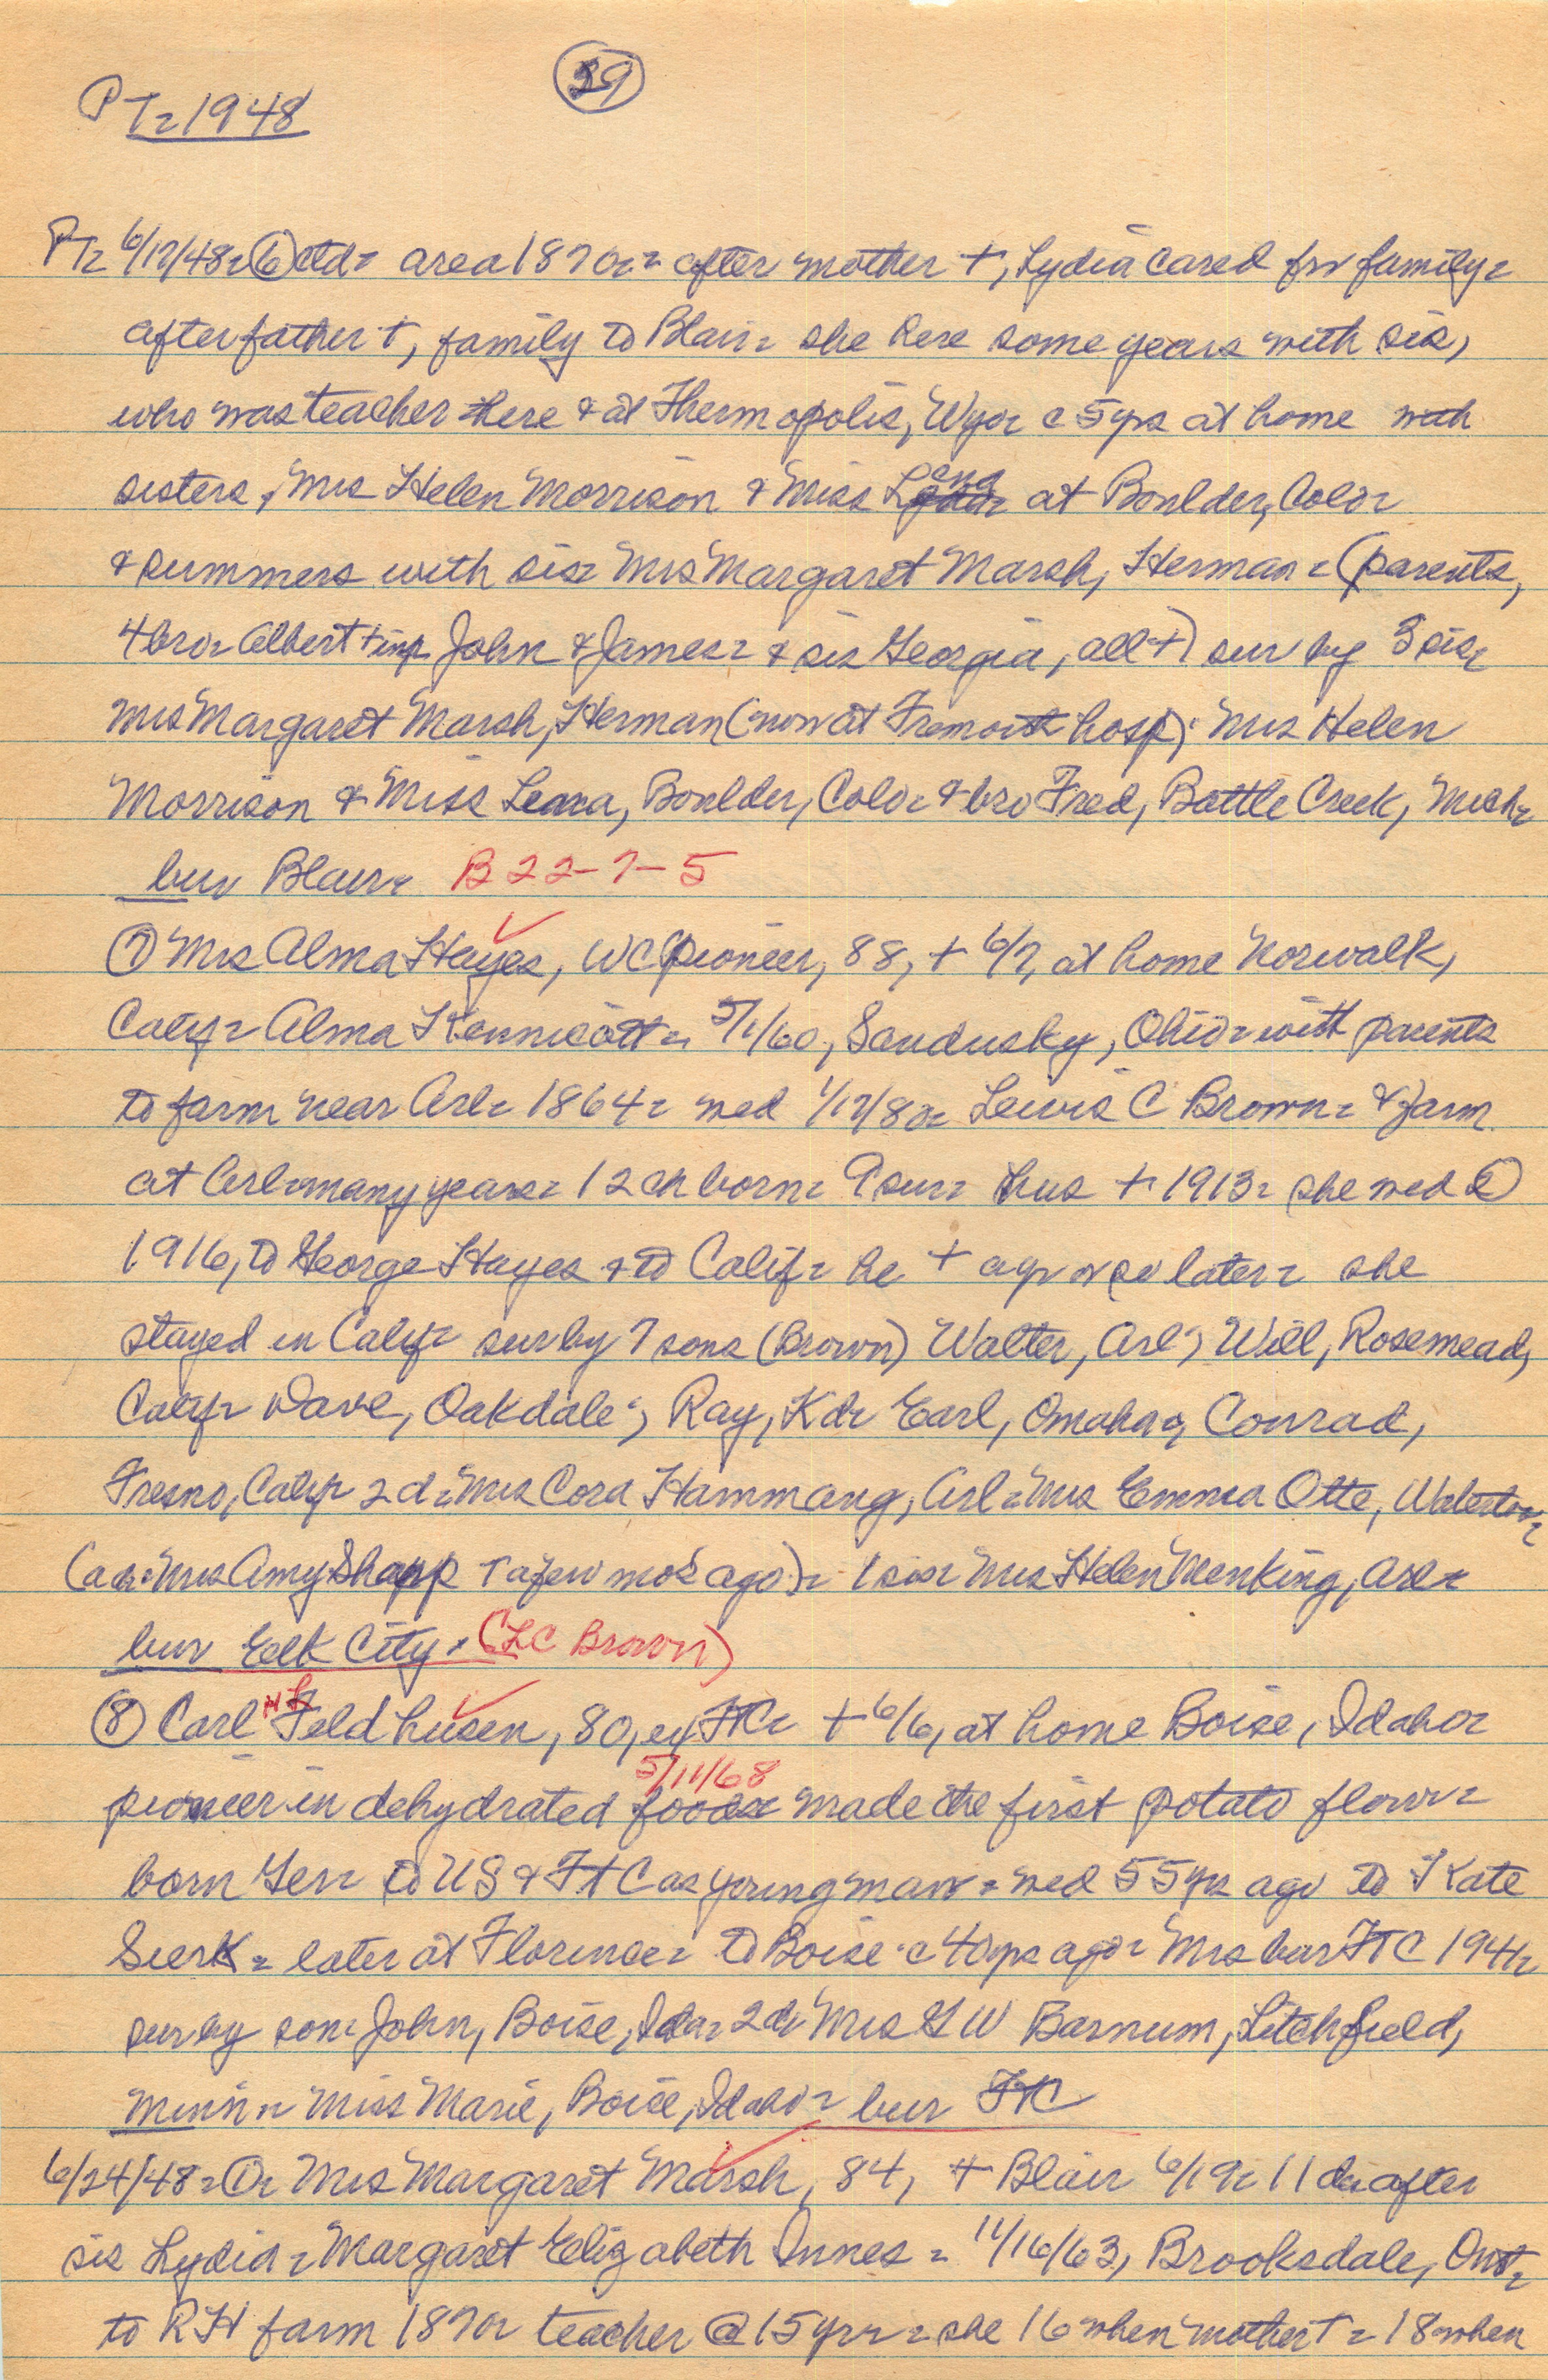 29
PT- 1948
PT- 6/17/48- (6) ctd- area 1870- after mother +, Lydia cared for family-
after father +, family to Blair- she here some years with sis,
who was teacher here & at Thermopolis, Wyo- c 5 yrs at home with
sisters, Mrs Helen Morrison & Miss Lena at Boulder, Colo-
& summers with sis- Mrs Margaret Marsh, Herman- (parents,
4 bro- Albert + inf John & James- & sis Georgia, all +) sur by 3 sis-
Mrs Margaret Marsh, Herman (now at Fremont hosp); Mrs Helen
Morrison & Miss Lena, Boulder, Colo- & bro Fred, Battle Creek, Mich-
bur Blair- B 22-7-5
(7) Mrs Alma Hayes, WC pioneer, 88, + 6/7, at home Norwalk,
Calif- Alma Kennicott- 5/1/60, Sandusky, Ohio- with parents
to farm near Arl- 1864- wed 1/17/80- Lewis C Brown- & farm
at Arl- many years- 12 ch born- 9 sur- hus + 1913- she wed (2)
1916, to George Hayes & to Calif- he + a yr or so later- she
stayed in Calif- sur by 7 sons (Brown) Walter, Arl; Will, Rosemead,
Calif- Dave, Oakdale; Ray, Kd- Earl, Omaha, Conrad,
Fresno, Calif- 2 d- Mrs Cora Hammang, Arl- Mrs Emma Otte, Waterloo-
(a d- Mrs Amy Shapp + a few mos ago)- 1 sis- Mrs Helen Menking, Arl-
bur Elk City- (LC Brown)
(8) Carl Feldhusen, 80, ex FtC- + 6/6, at home Boise, Idaho-
5/11/68
pioneer in dehydrated foods- made the first potato flour-
born Ger- to US & FtC as young man- wed 55 yrs ago to Kate
Sierk- later at Florence- to Boise c 40 yrs ago- Mrs bur FtC 1941-
sur by son- John, Boise, Ida- 2 d- Mrs G W Barnum, Litchfield,
Minn- Miss Marie, Boise, Idaho- bur FtC
6/24/48- (1)- Mrs Margaret Marsh, 84, + Blair 6/19- 11 da after
sis Lydia- Margaret Elizabeth Innes- 11/16/63, Brooksdale, Ont-
to RH farm 1870- teacher @ 15 yrs- she 16 when mother +- 18 when